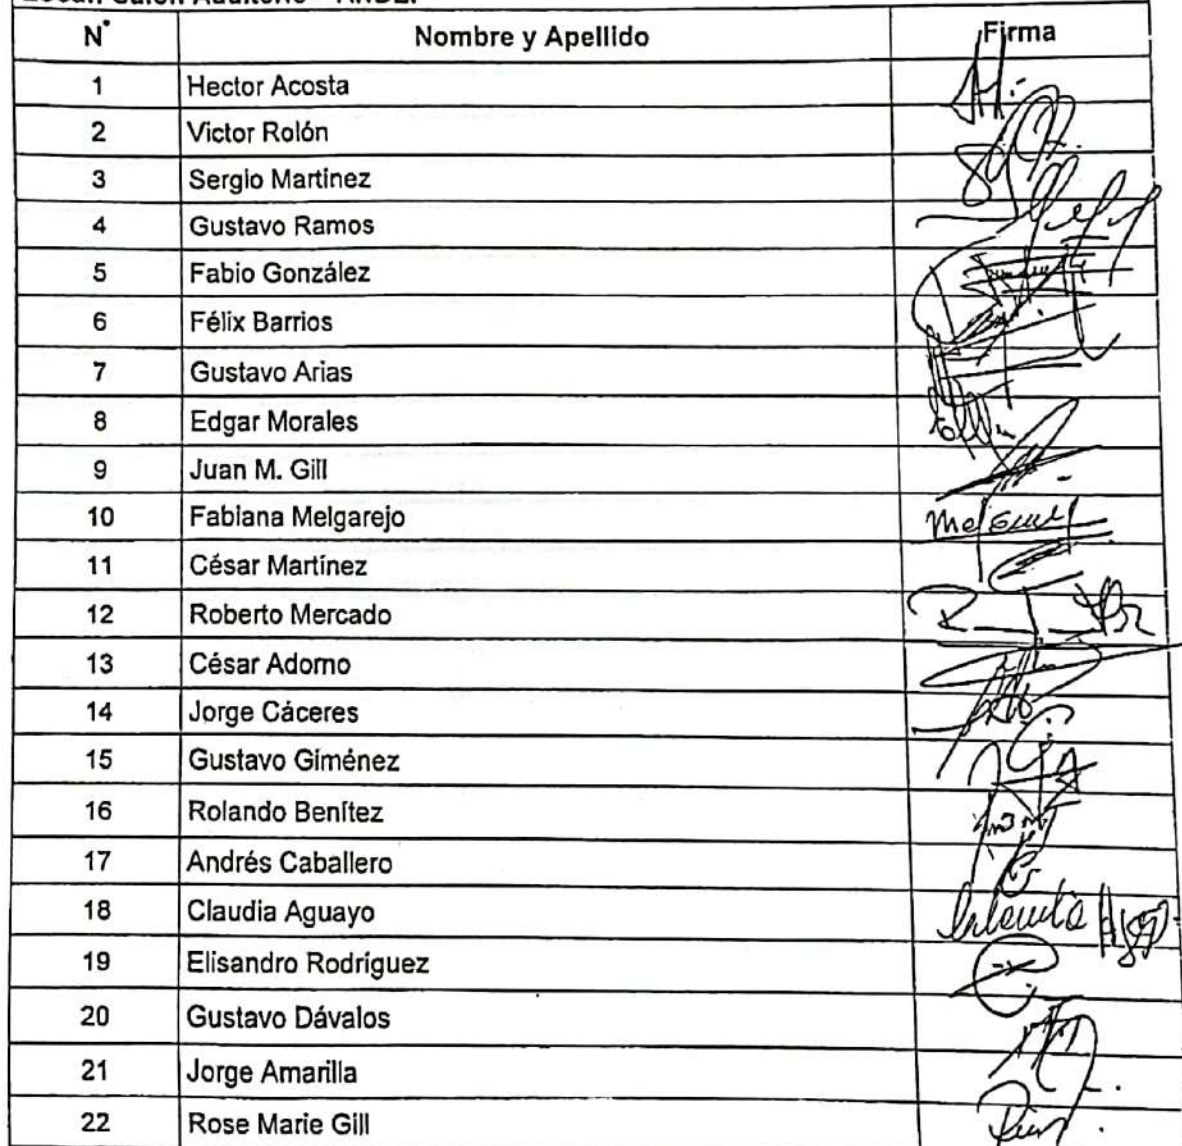 Local: Salón Auditorio - ANDE.
N° Nombre y Apellido Firma
1 Hector Acosta
2 Victor Rolón
3 Sergio Martínez
4 Gustavo Ramos
5 Fabio González
6 Félix Barrios
7 Gustavo Arias
8 Edgar Morales
9 Juan M. Gill
10 Fabiana Melgarejo
11 César Martínez
12 Roberto Mercado
13 César Adorno
14 Jorge Cáceres
15 Gustavo Giménez
16 Rolando Benítez
17 Andrés Caballero
18 Claudia Aguayo
19 Elisandro Rodríguez
20 Gustavo Dávalos
21 Jorge Amarilla
22 Rose Marie Gill